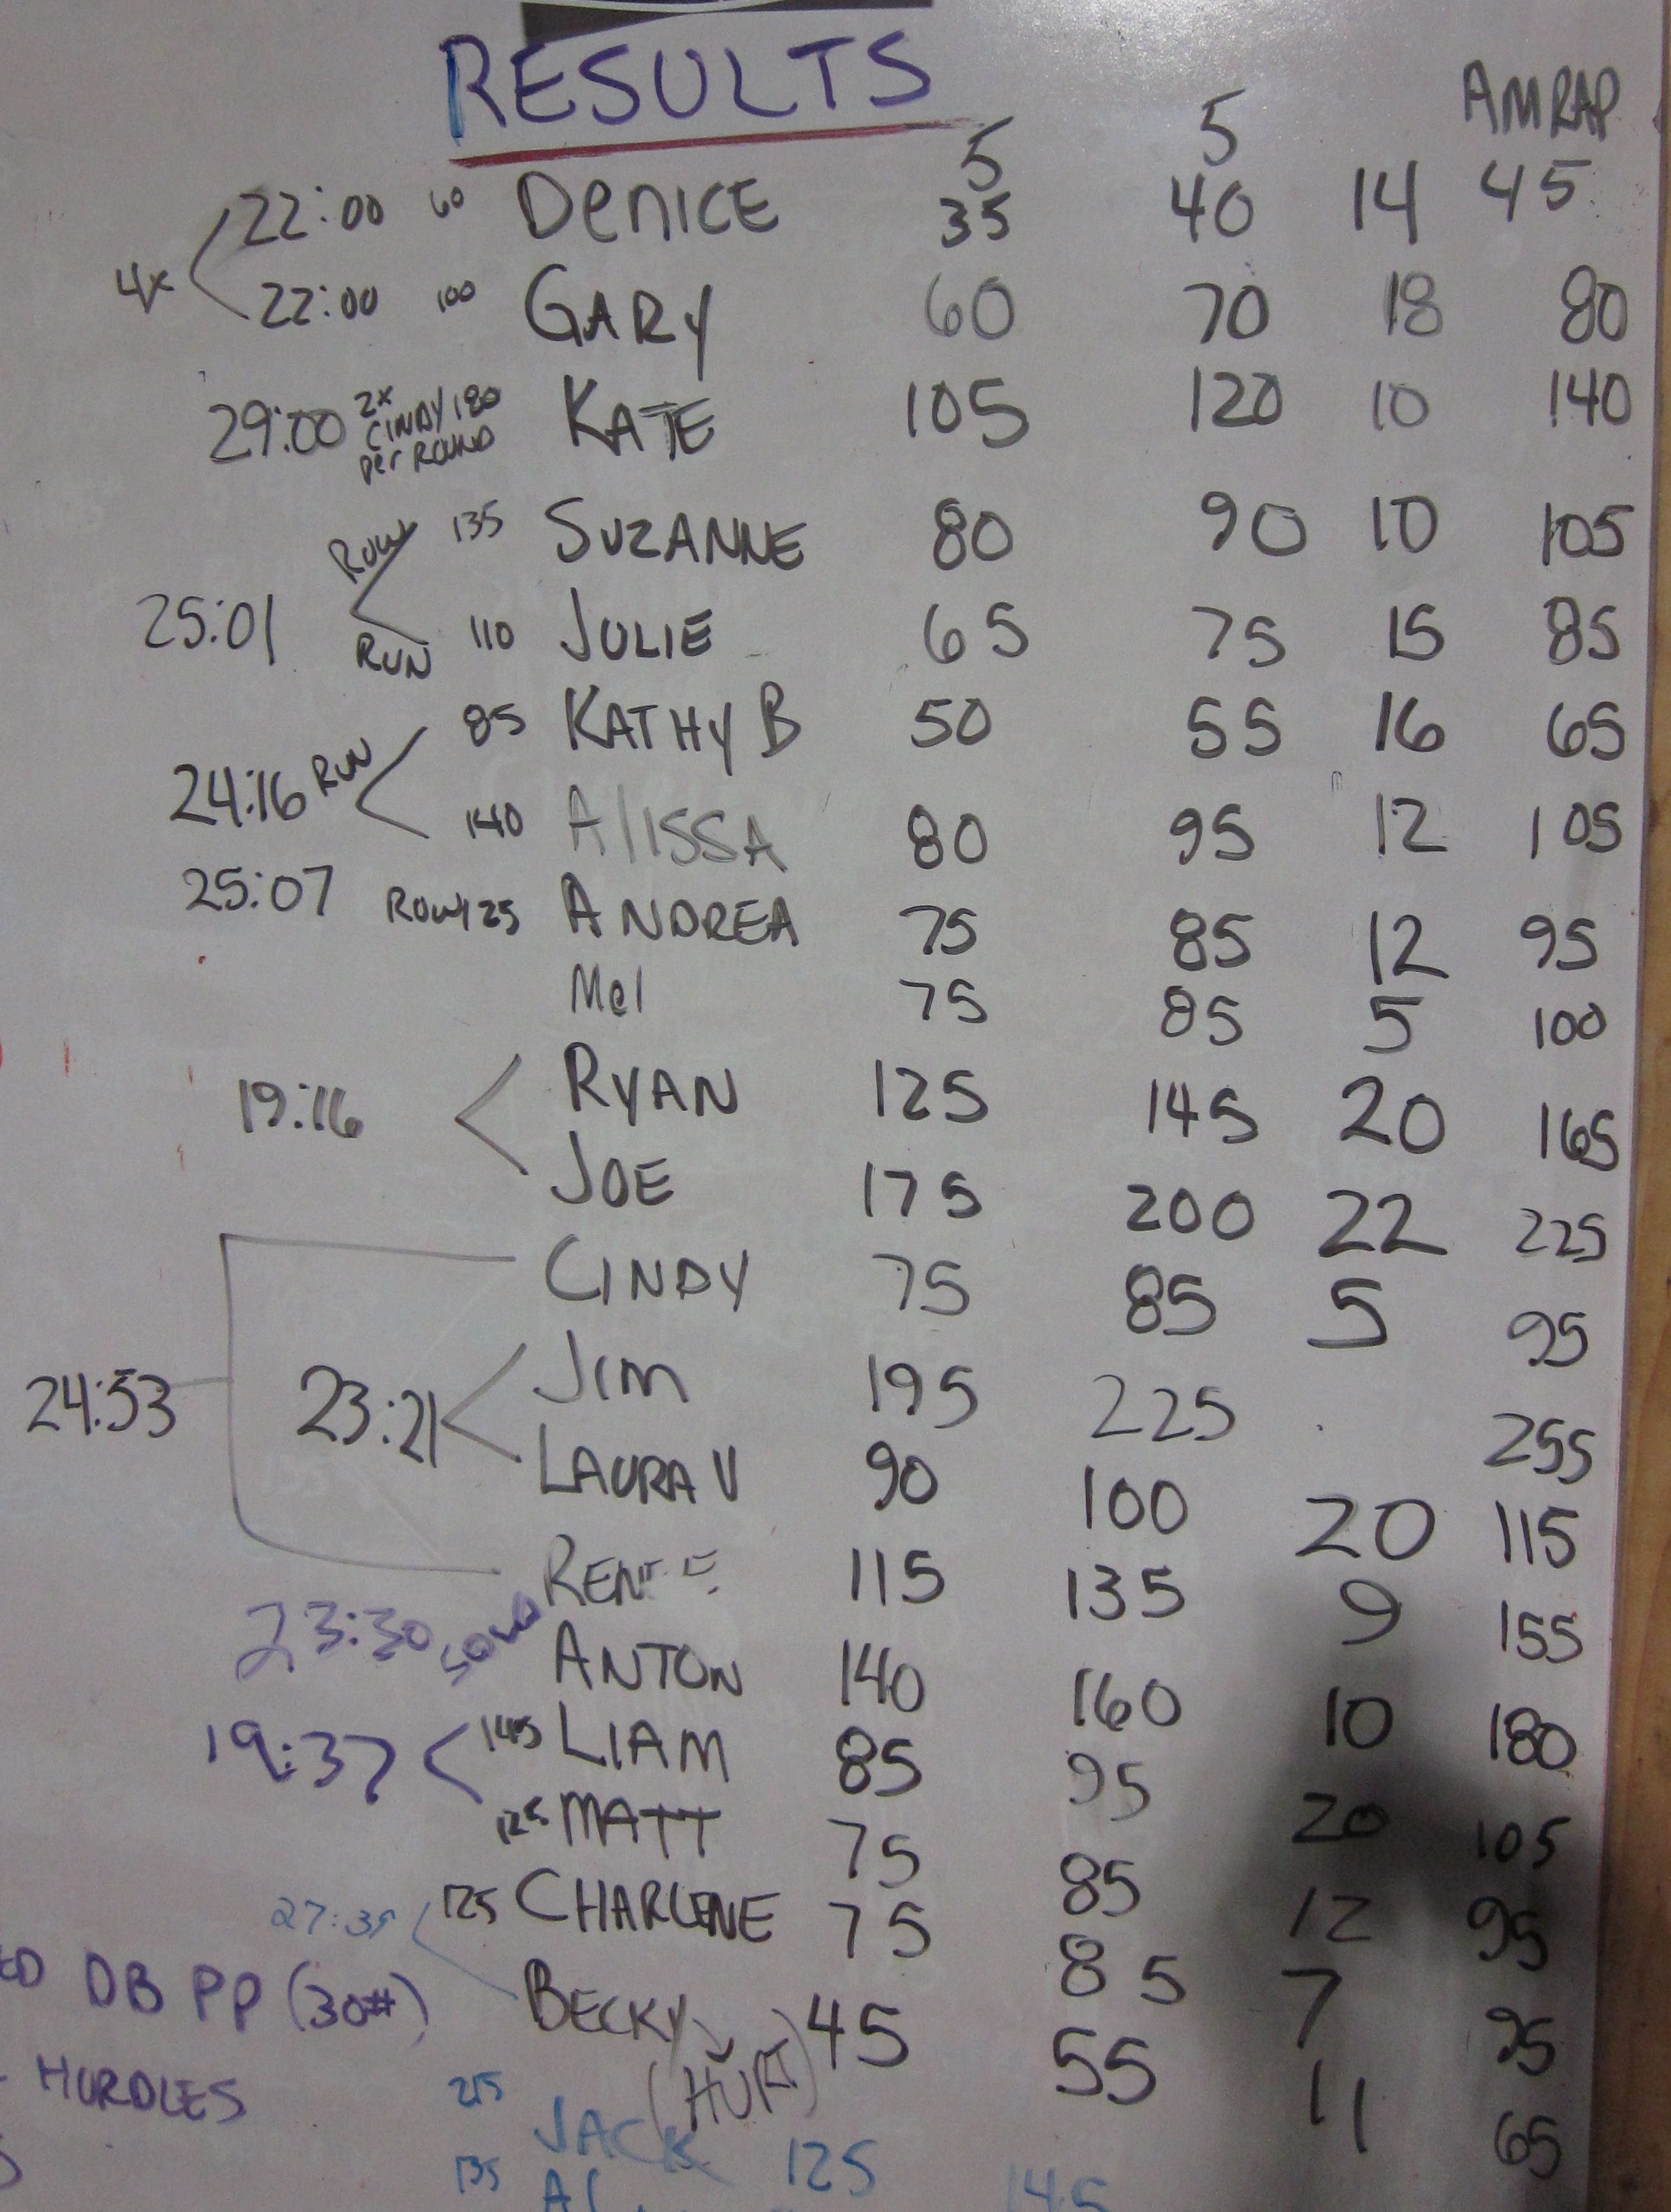 RESULTS
5 5 AMRAP
4x
22:00 60 DENICE 35 40 14 45
22:00 100 GARY 60 70 18 80
29:00 2x CINDY 180 per ROUND KATE 105 120 10 140
ROW 135 SUZANNE 80 90 10 105
25:01
RUN 110 JULIE 65 75 15 85
85 KATHY B 50 55 16 65
24:16 RUN
140 AlISSA 80 95 12 105
25:07 ROW 125 ANDREA 75 85 12 95
Mel 75 85 5 100
19:16
RYAN 125 145 20 165
JOE 175 200 22 225
CINDY 75 85 5 95
24:53 23:21
JIM 195 225 255
LAURA V 90 100 20 115
RENEE 115 135 9 155
23:30
ANTON 140 160 10 180
19:37
145 LIAM 85 95 20 105
125 MATT 75 85 12 95
27:35 125 CHARLENE 75 85 7 95
BECKY (HURT) 45 55 11 65
ED DB PP (30#)
HURDLES
215 JACK 125 145
135 Al